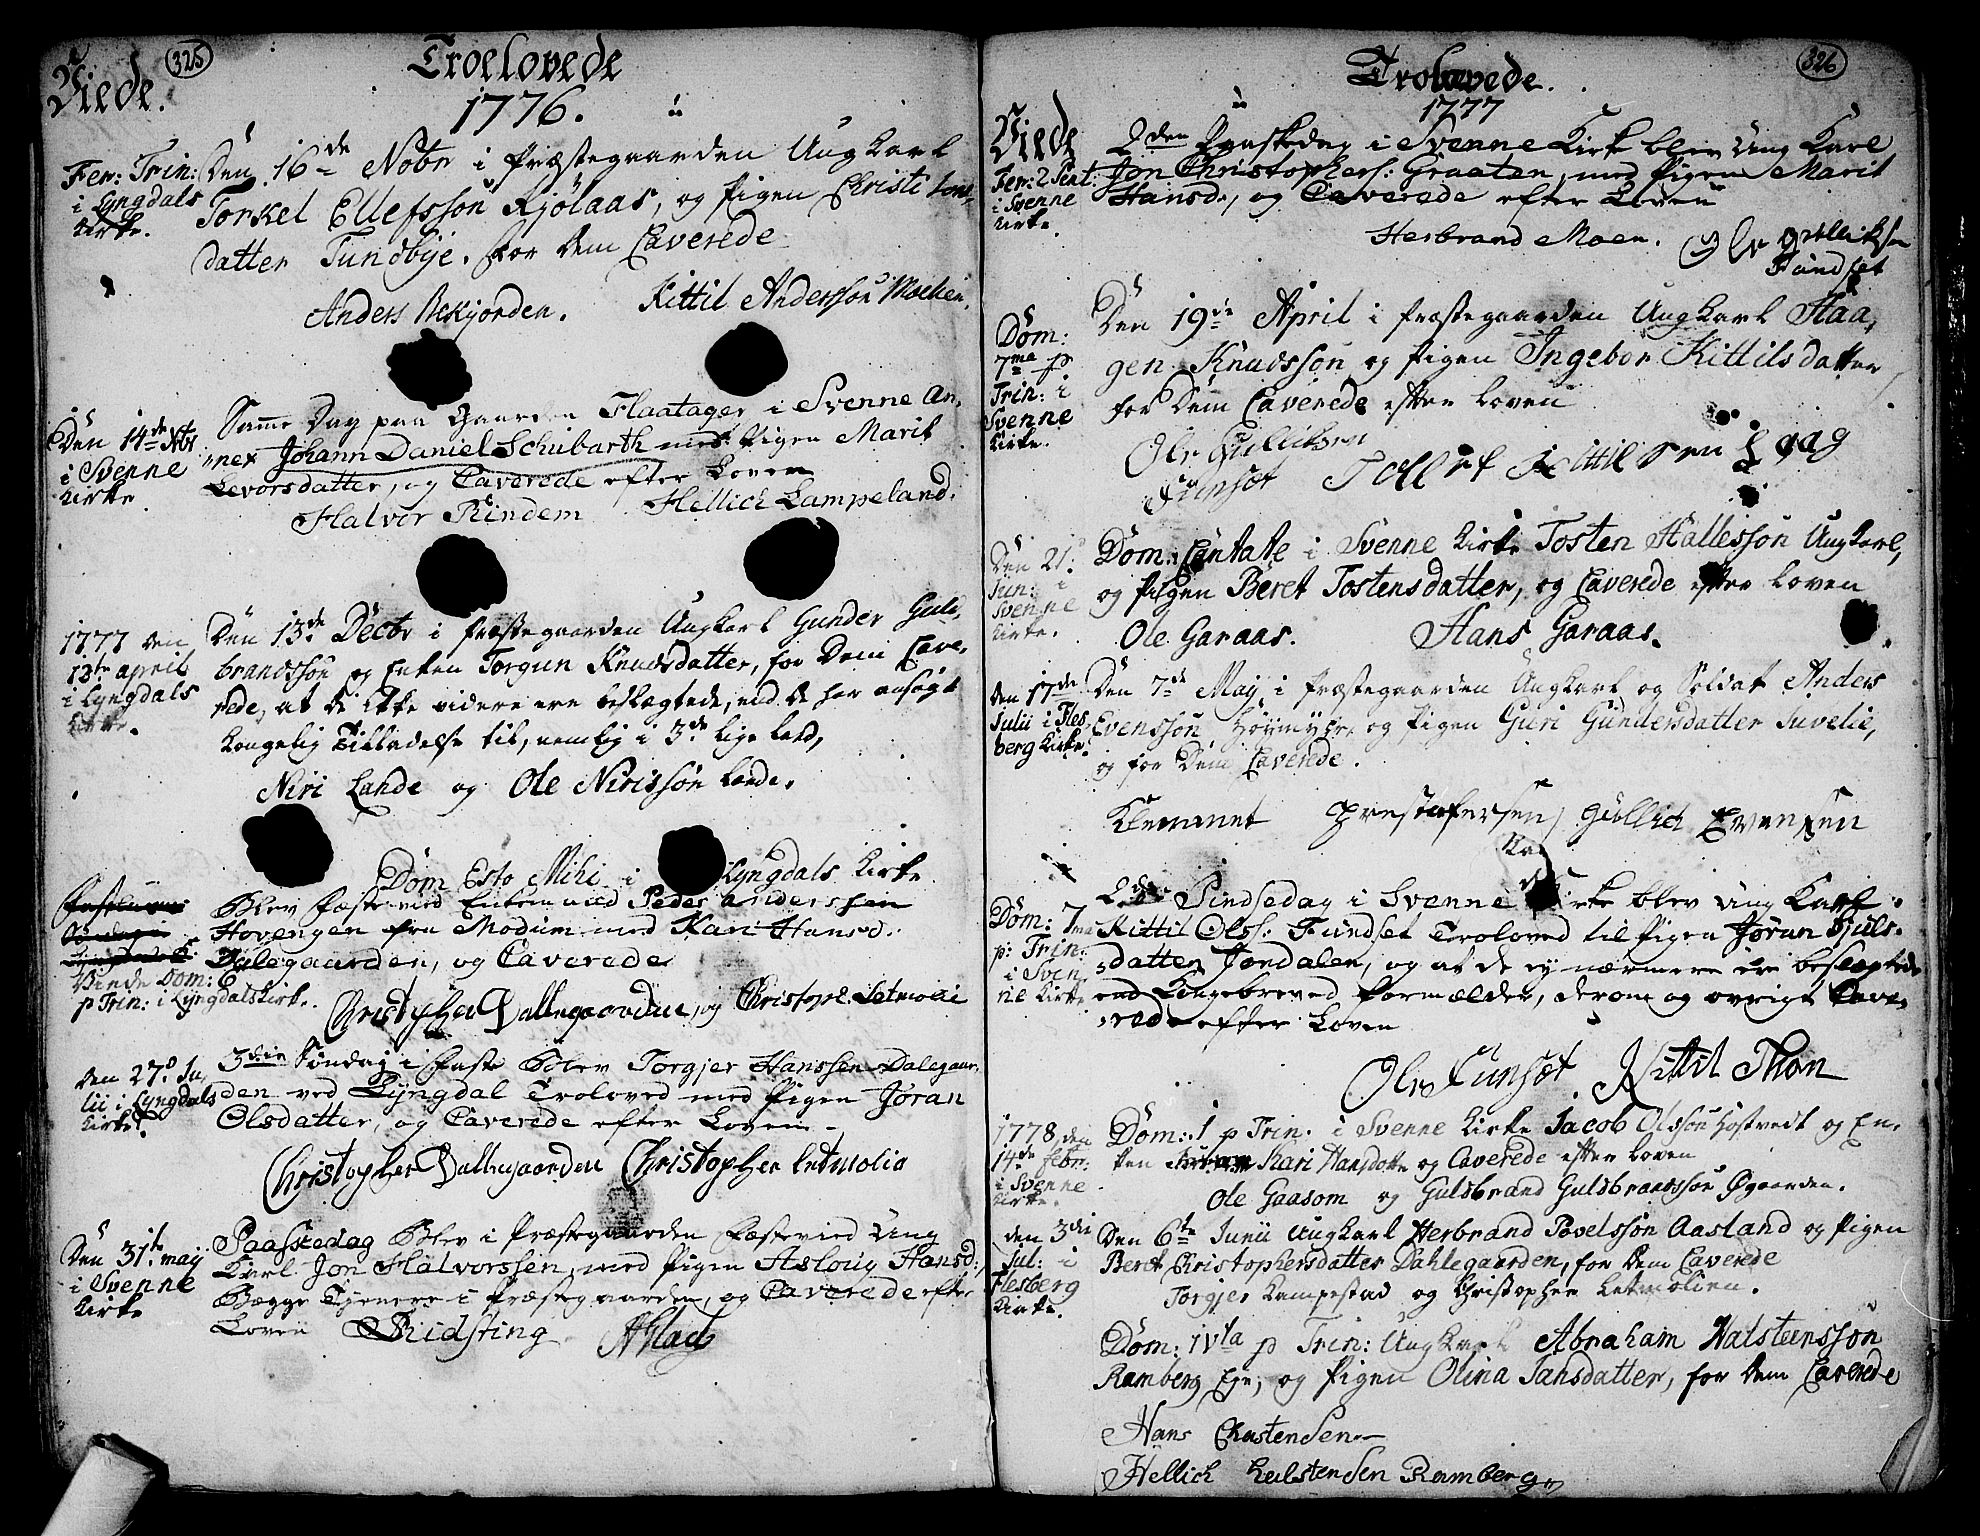 325
Viede.
Troelovede
1776.
Fer: Trin:
i Lyngdals
Kirke.
Den 16de Nobr i Præstegaarden Ungkarl
Torkel Ellefssøn Kjølaas, og Pigen Christi Jons,
datter Tundbye. for Dem Caverede
Anders Bekjorden. Kittil Anderssøn Moehen.
Den 14de Nbr
i Svenne
Kirke.
Samme Dag paa Gaarden Flaatager i Svenne An,
nex Johann Daniel Schubarth med Pigen Marit
Levorsdatter, og Caverede efter Loven
Halvor Rindem Hellich Lampeland.
1777 den
13te april
i Lyngdals
Kirke.
Den 13de Decbr i Præstegaarden Ungkarl Gunder Gul,
brandssøn og Enken Torgun Knudsdatter, for Dem Cave,
rede, at de ikke videre ere beslægtede, end de har ansøgt
Kongelig Tilladelse til, nemlig i 3de lige Led,
Niri Lande og Ole Nirissøn Lande.
Dom Esto Mihi i Lyngdals Kirke
Viede Dom: 6
p Trin: i Lyngdals Kirke.
Blev Fæstevied Enkemand Peder Anderssen
Hovengen fra Modum med Kari Hansd.
Dalegaarden, og Caverede
Christopher Dallegaarden, og Christoph. Letmolie
Den 27de Ju,
lii i Lyngdals
Kirke.
3die Søndag i Faste Blev Torgjer Hanssen Dalegaar,
den ved Lyngdal Troloved med Pigen Jøran
Olsdatter, og Caverede efter Loven
Christopher Dallegaarden Christopher Letmolia
Den 31te may
i Svenne
Kirke
Paaskedag Blev i Præstegaarden Fæstevied Ung
Karl Jon Halvorssen, med Pigen Asloug Hansd:,
Begge Tjenere i Præstegaarden, og Caverede efter
Loven Ridsting
326
Trolovede.
1777
Viede
Fer: 2 Pent:
i Svenne
Kirke.
2den Paaskedag i Svenne Kirke blev Ung Karl
Jon Christophers: Graaten, med Pigen Marit
Hansd., og Caverede efter Loven
Herbrand Moen. Ole Gulliksen
Fundset
Dom:
7ma p
Trin: i
Svenne
Kirke.
Den 19de April i Præstegaarden Ungkarl Haa,
gen Knudssøn og Pigen Ingebor Kittilsdatter,
for Dem Caverede efter Loven
Ole Gulliksen
Funset Tollef Kittilsen
Den 21
Jun: i
Svenne
Kirke.
Dom: Cantate i Svenne Kirke Tosten Hallessøn Ungkarl,
og Pigen Beret Tostensdatter, og Caverede efter Loven
Ole Garaas. Hans Garaas.
Den 17de
Julii i Fles,
berg Kirke.
Den 7de May, i Præstegaarden Ungkarl og Soldat Anders
Evenssøn Høymyhr, og Pigen Guri Gundersdatter Juvelie,
og for Dem Caverede.
Klemmet Prestafersen, Gullich Evensen
Dom: 7ma
p: Trin:
i Sven,
ne Kirke
2den Pindsedag i Svenne Kirke blev Ung Karl
Kittil Olss: Fundset Troloved til Pigen Jøran Kjuls,
datter Jondalen, og at de ej nærmere ere beslægtede
end Kongebreved Formælder, derom og øvrigt Cave,
rede efter Loven
Ole Funset Kittil Thon
1778, den
14de febr:
i Svenne
Kirke.
Dom: 1 p Trin: i Svenne Kirke Jacob Olssøn Hostvedt og En,
ken Kari Hansdotte og Caverede efter Loven
Ole Gaasom og Guldbrand Guldbrandssøn Øgaarden.
den 3die
Jul: i
Flesberg
Kirke.
Den 6te Junii Ungkarl Herbrand Povelssøn Aasland og Pigen
Beret Christophersdatter Dahlegaarden, for Dem Caverede
Torgjer Kampestad og Christopher Letmolien.
Dom: IVta p Trin: Ungkarl Abraham Halsteenssøn
Ramberg Eje, og Pigen Olina Jansdatter, for Dem Caverede
Hans Chastensen
Hellich Halstensen Ramberg